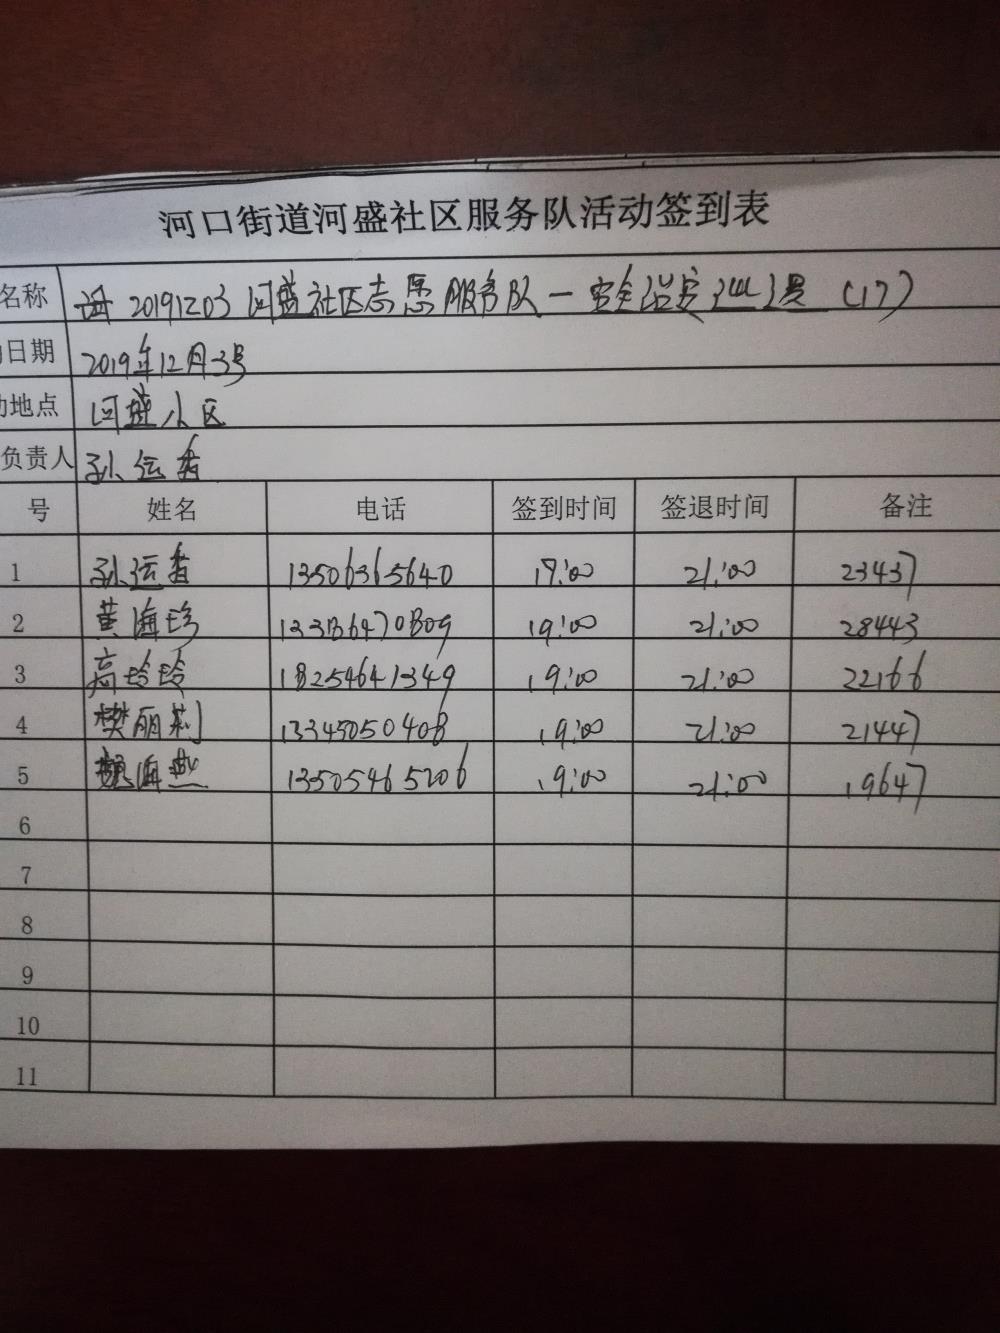 河口街道河盛社区服务队活动签到表
名称 20191203河盛社区志愿服务队一安全治安巡逻(17)
日期 2019年12月3号
地点 河盛小区
负责人 孙运香
号 姓名 电话 签到时间 签退时间 备注
1 孙运香 13506365640 19:00 21:00 23437
2 黄海珍 13386470809 19:00 21:00 28443
3 高玲玲 18254641349 19:00 21:00 22166
4 樊丽莉 13345050408 19:00 21:00 21447
5 魏海燕 13505465206 19:00 21:00 19647
6
7
8
9
10
11